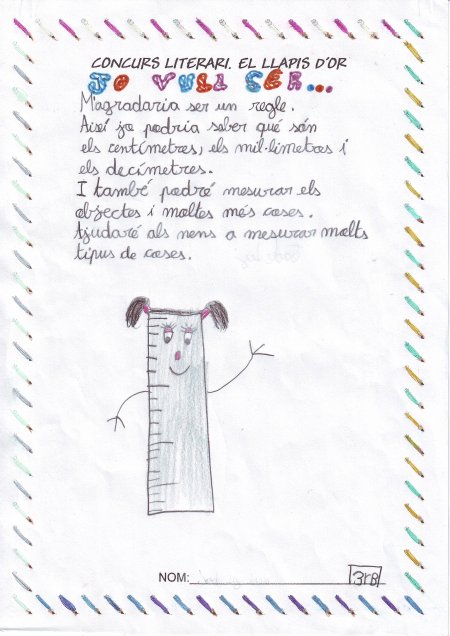 CONCURS LITERARI. EL LLAPIS D'OR
JO VULL SER...
M'agradaria ser un regle.
Així jo podria saber què són
els centímetres, els mil·límetres i
els decímetres.
I també podré mesurar els
objectes i moltes més coses.
Ajudaré als nens a mesurar molts
tipus de coses.
NOM: 3rB